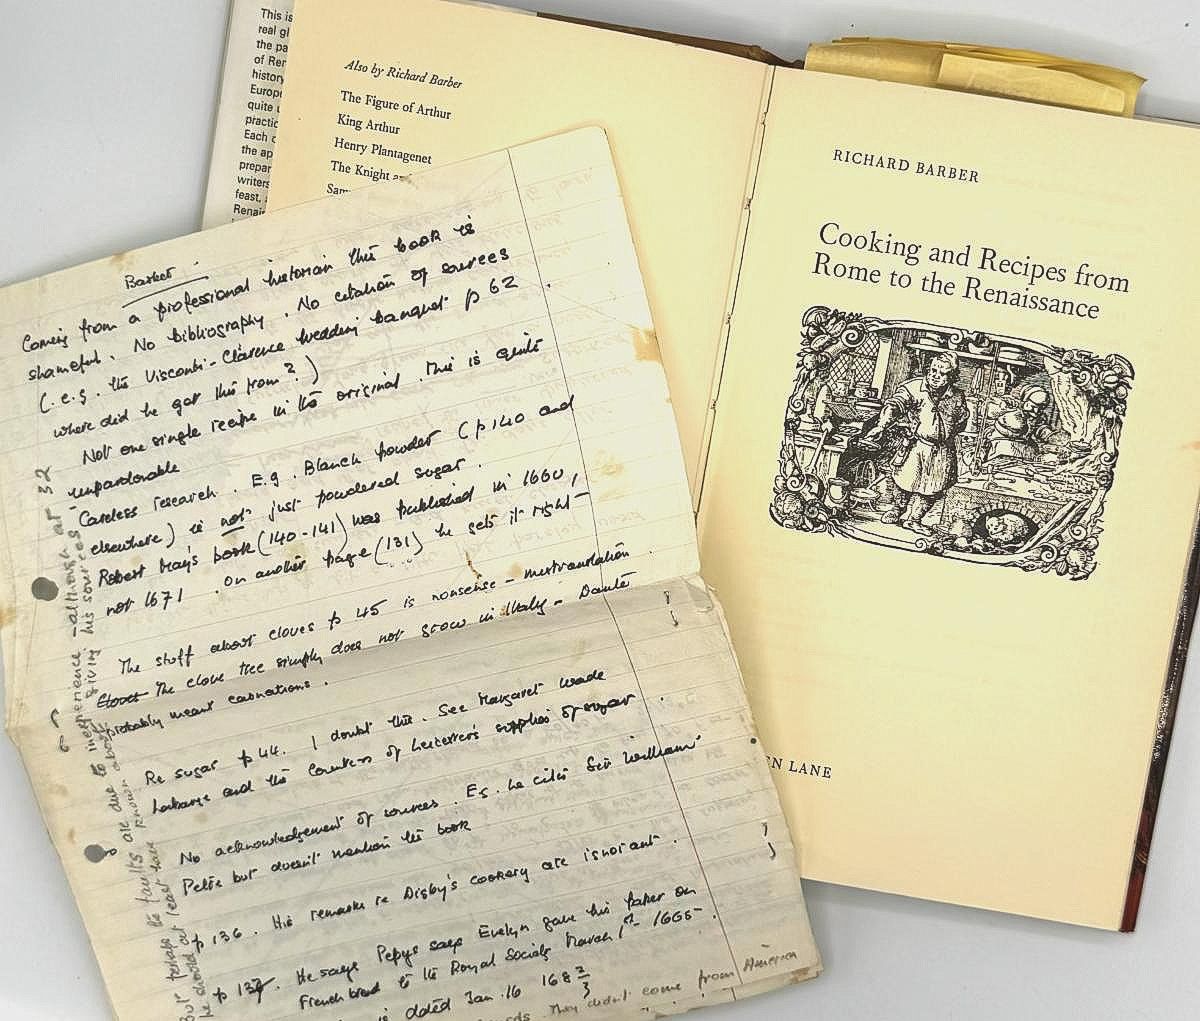 This is
real gl
the pa
of Ren
history
Europe
quite u
practic
Each c
the ap
prepar
writers
feast, a
Renais
Also by Richard Barber
The Figure of Arthur
King Arthur
Henry Plantagenet
The Knight
Sam
RICHARD BARBER
Cooking and Recipes from
Rome to the Renaissance
EN LANE
Barber
Coming from a professional historian this book is
shameful. No bibliography. No citation of sources
(.e.g. the Visconti-Clarence wedding banquet p 62.
where did he get this from?)
Not one single recipe in the original. This is quite
unpardonable
Careless research. E.g. Blanch powder (p 140 and
elsewhere) is not just powdered sugar.
Robert May's book (140-141) was published in 1660,
not 1671. On another page (131) he gets it right-
The stuff about cloves p 45 is nonsense - mistranslation.
The clove tree simply does not grow in Italy - Dante
probably meant carnations.
Re sugar p 44. I doubt this. See Margaret Wade
Labarge and the Countess of Leicester's supplies of sugar.
No acknowledgement of sources. Eg. he cites Sir William
Petre but doesn't mention the book
p 136. His remarks re Digby's cookery are ignorant.
p 137. He says Pepys says Evelyn gave his paper on
French bread to the Royal Society March 1st 1665.
is dated Jan. 16 168 2/3
They didn't come from America
But perhaps the faults are due to inexperience - although at 32
he should at least have known about giving his sources